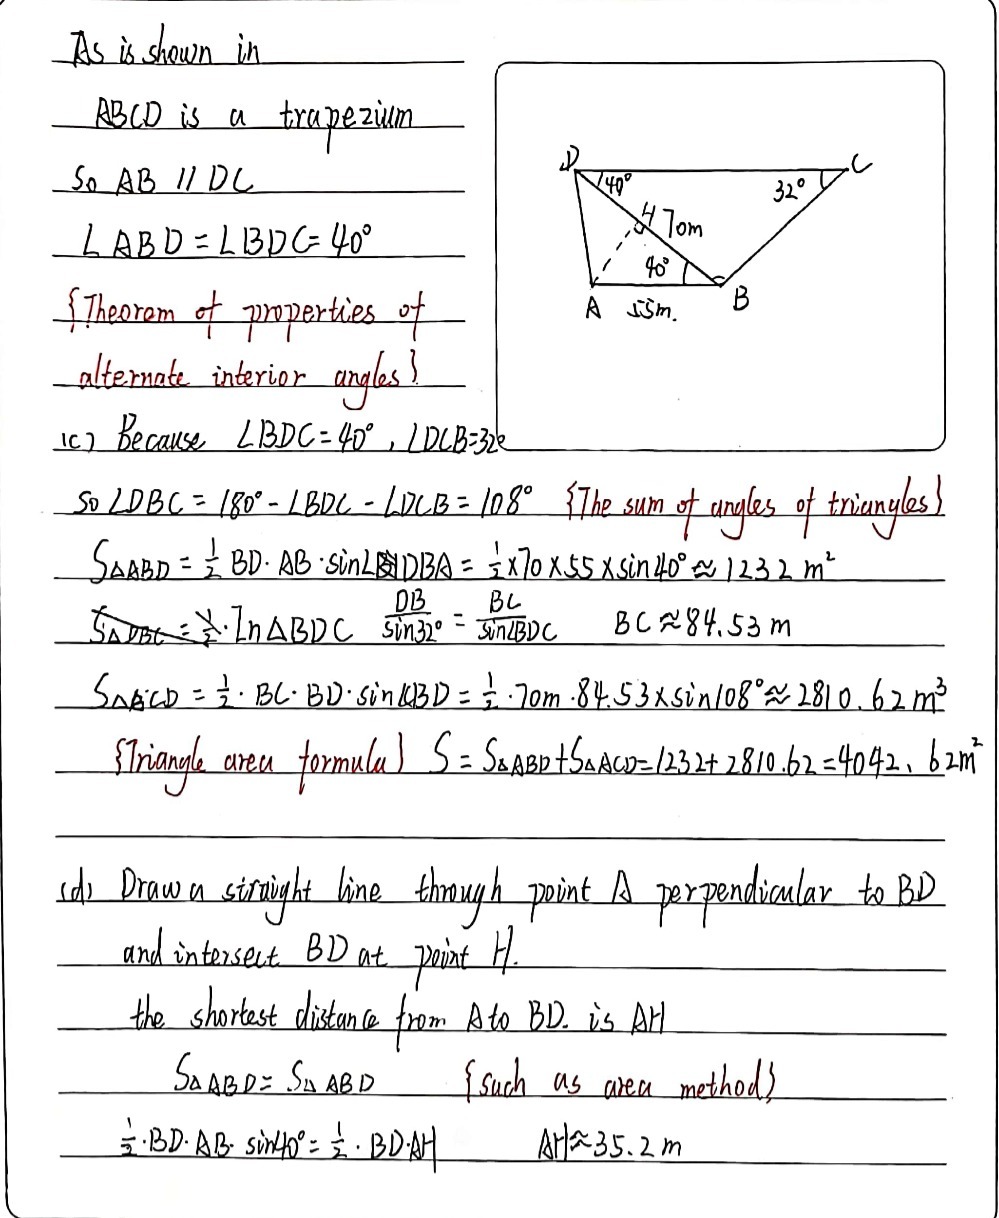 As is shown in
ABCD is a trapezium
So AB // DC
∠ABD = ∠BDC = 40°
{Theorem of properties of
alternate interior angles}
D
C
40°
32°
H
70m
40°
A
55m.
B
(c) Because ∠BDC = 40°, ∠DCB = 32°
so ∠DBC = 180° - ∠BDC - ∠DCB = 108° {The sum of angles of triangles}
S△ABD = 1/2 BD · AB · sin∠DBA = 1/2 × 70 × 55 × sin40° ≈ 1232 m²
In △BDC DB/sin32° = BC/sin∠BDC BC ≈ 84.53 m
S△BCD = 1/2 · BC · BD · sin∠CBD = 1/2 · 70m · 84.53 × sin108° ≈ 2810.62 m³
{Triangle area formula} S = S△ABD + S△ACD = 1232 + 2810.62 = 4042.62m²
(d) Draw a straight line through point A perpendicular to BD
and intersect BD at point H.
the shortest distance from A to BD. is AH
S△ABD = S△ABD {such as area method}
1/2 · BD · AB · sin40° = 1/2 · BD · AH AH ≈ 35.2 m